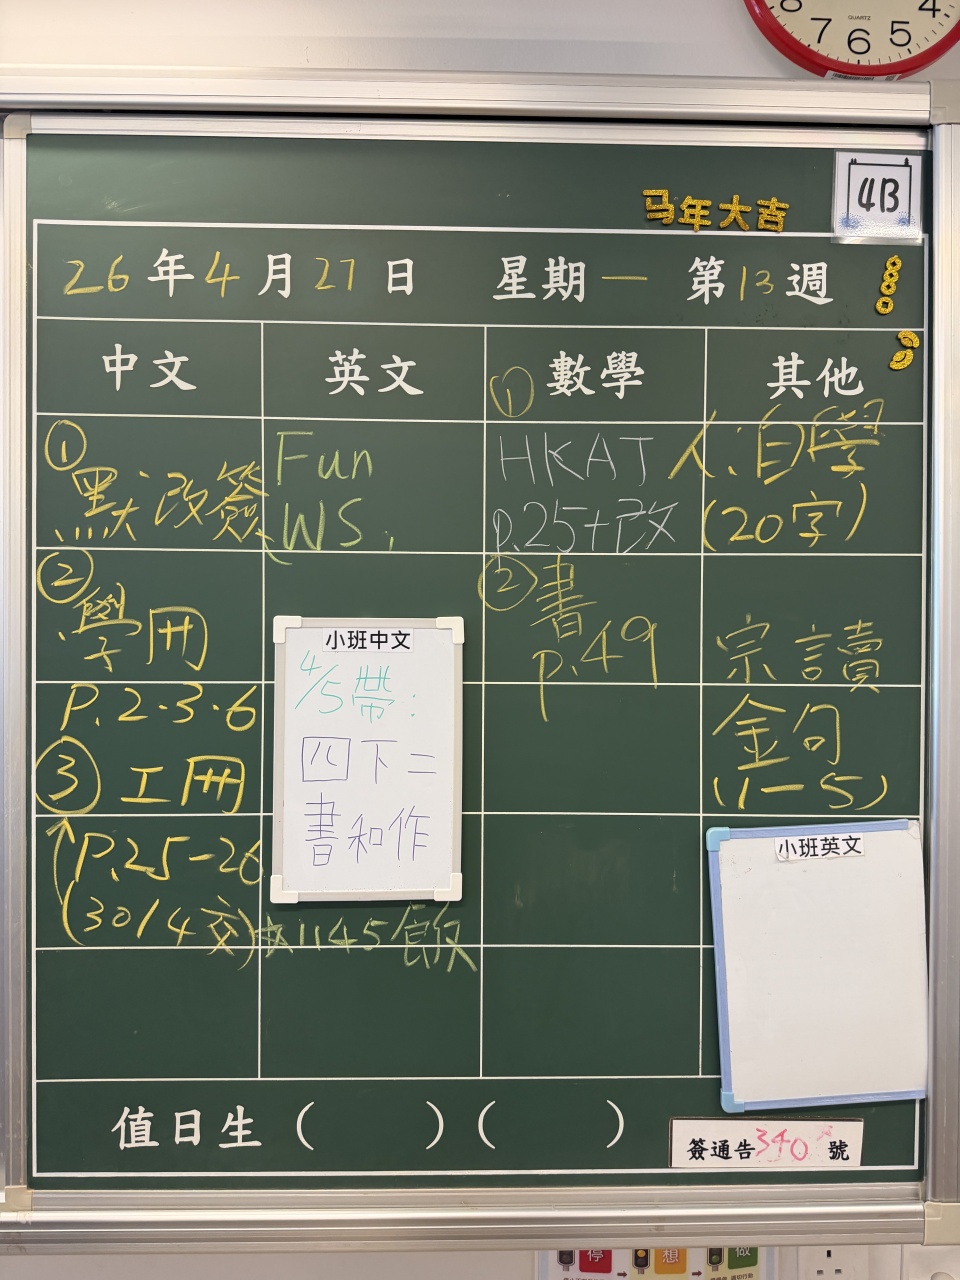 8 7 6 5 4
QUARTZ
马年大吉
4B
26年4月27日 星期一 第13週
中文
①
默改簽
②
學冊
P.2.3.6
③ 工冊
P.25-26
(30/4交)
英文
Fun
WS.
小班中文
4/5帶:
四下二
書和作
1145
數學
①
HKAT
p.25+改
②書
p.49
其他
人:自學
(20字)
宗讀
金句
(1-5)
小班英文
值日生 ( ) ( )
簽通告340號
停
想
做